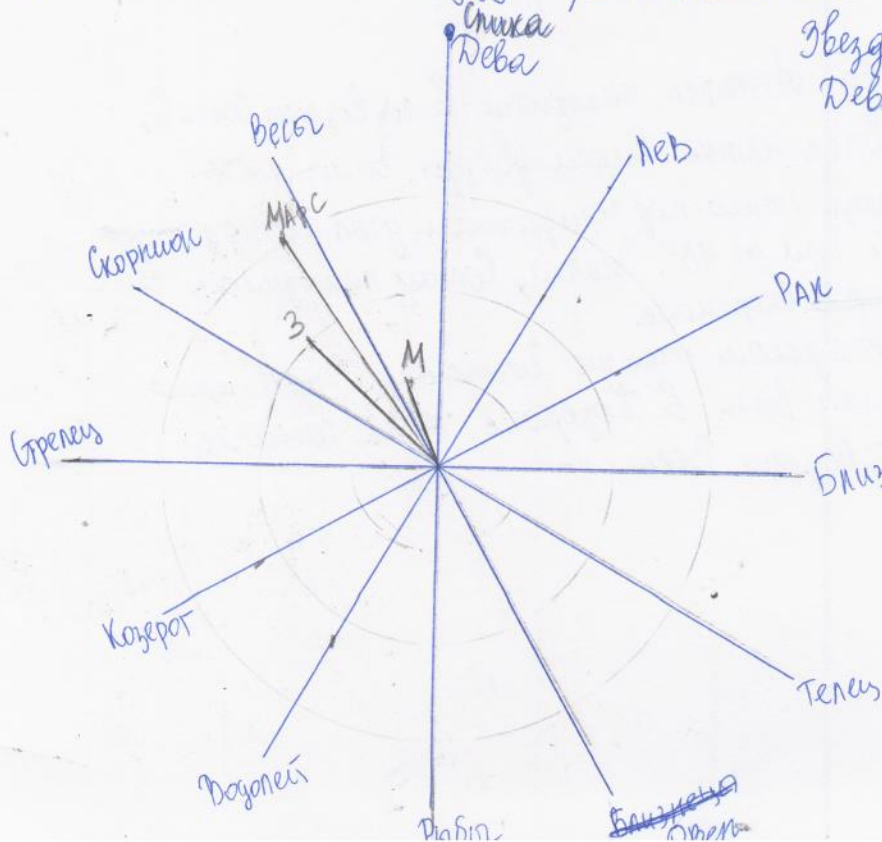 Спика
Дева
Звезд
Дев
Весы
Лев
МАРС
Скорпион
РАК
З
М
Стрелец
Близ
Козерог
Телец
Водолей
Рыбы
Близнецы
Овен